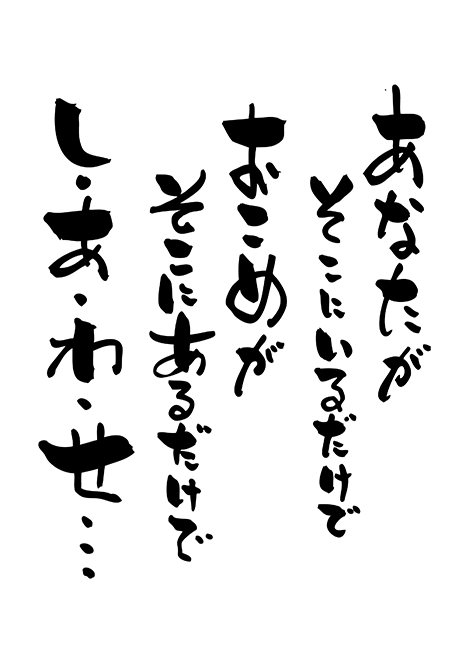 あなたが
そこにいるだけで
おこめが
そこにあるだけで
し・あ・わ・せ・・・